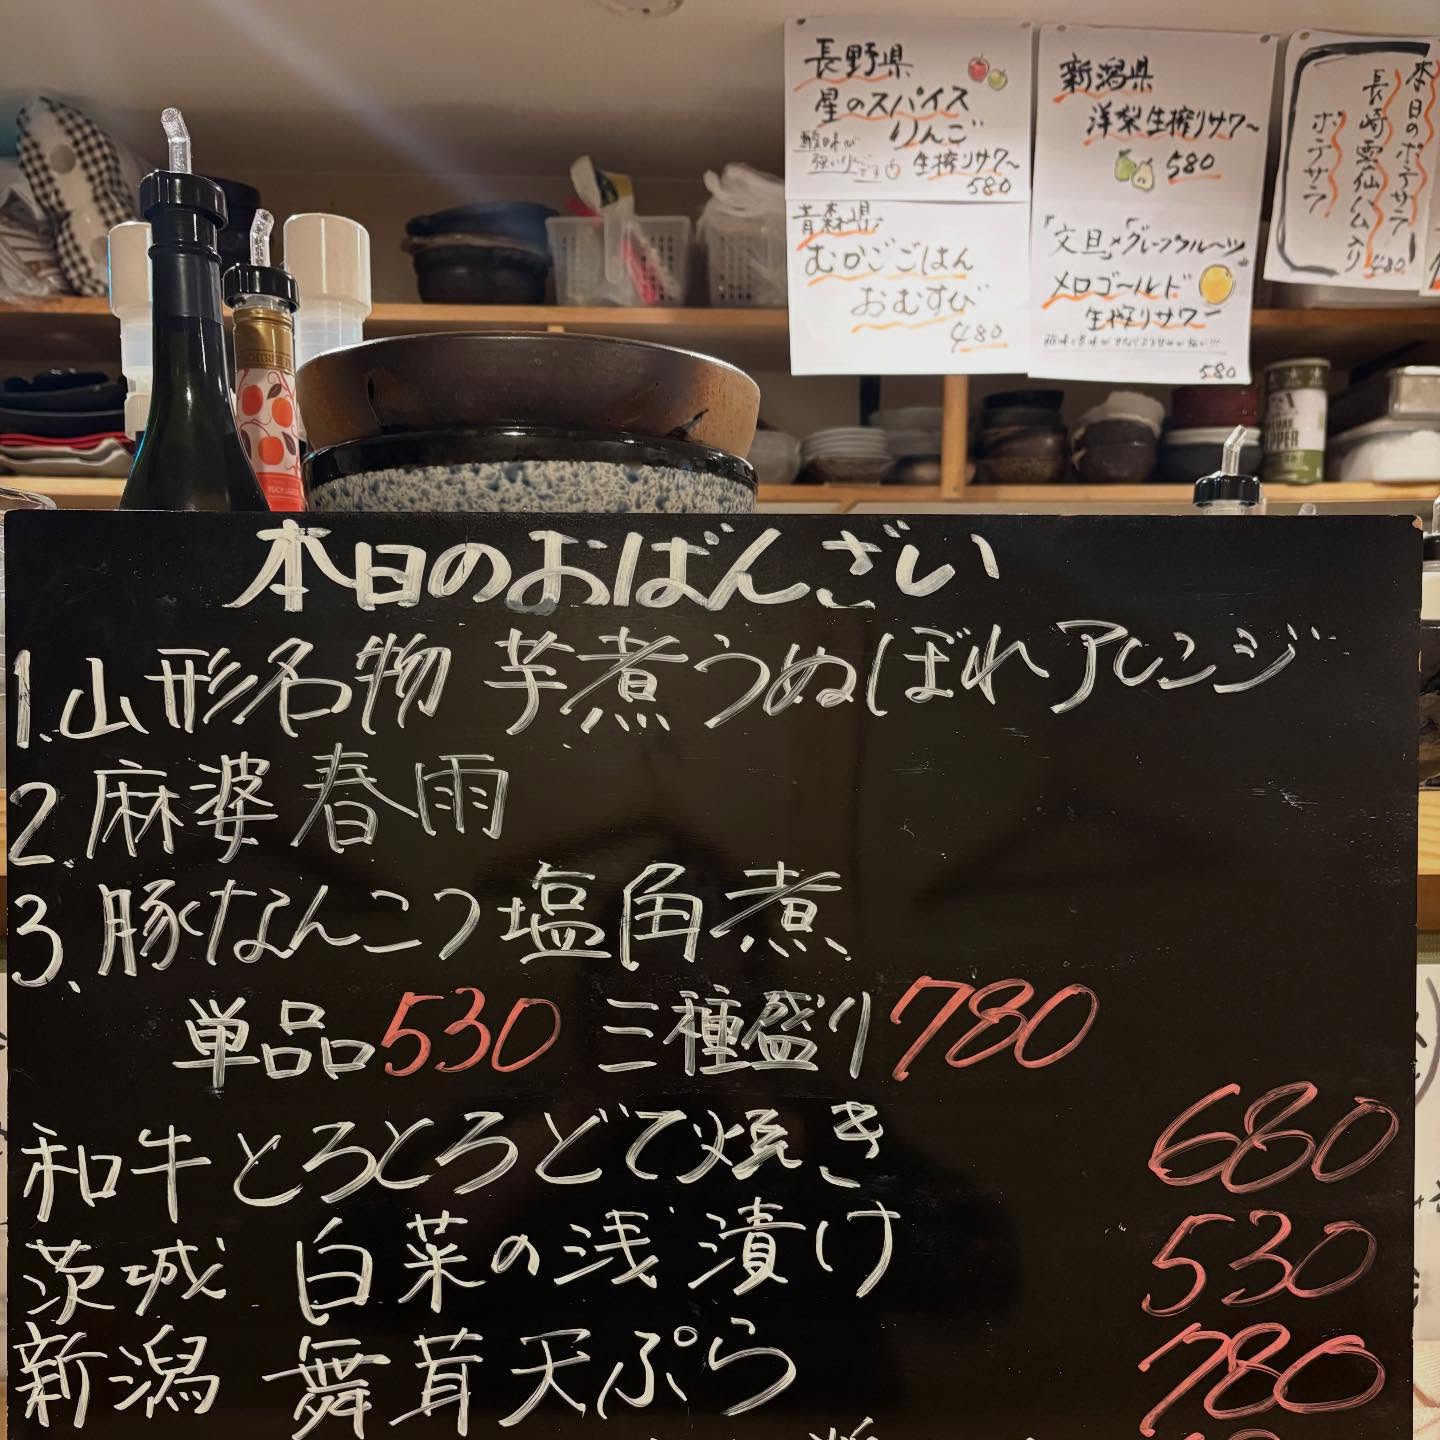 長野県
星のスパイス
りんご
酸味が
強いりんごです
生搾りサワー
580
青森県
むかごごはん
おむすび
480
新潟県
洋梨生搾りサワー
580
「文旦」×「グレープフルーツ」
メロゴールド
生搾りサワー
580
本日のポテサラ
長崎雲仙ハム入り
ポテサラ
480
本日のおばんざい
1.山形名物 芋煮うぬぼれアレンジ
2.麻婆春雨
3.豚なんこつ塩角煮
単品530 三種盛り780
和牛とろとろどて焼き 680
茨城 白菜の浅漬け 530
新潟 舞茸天ぷら 780